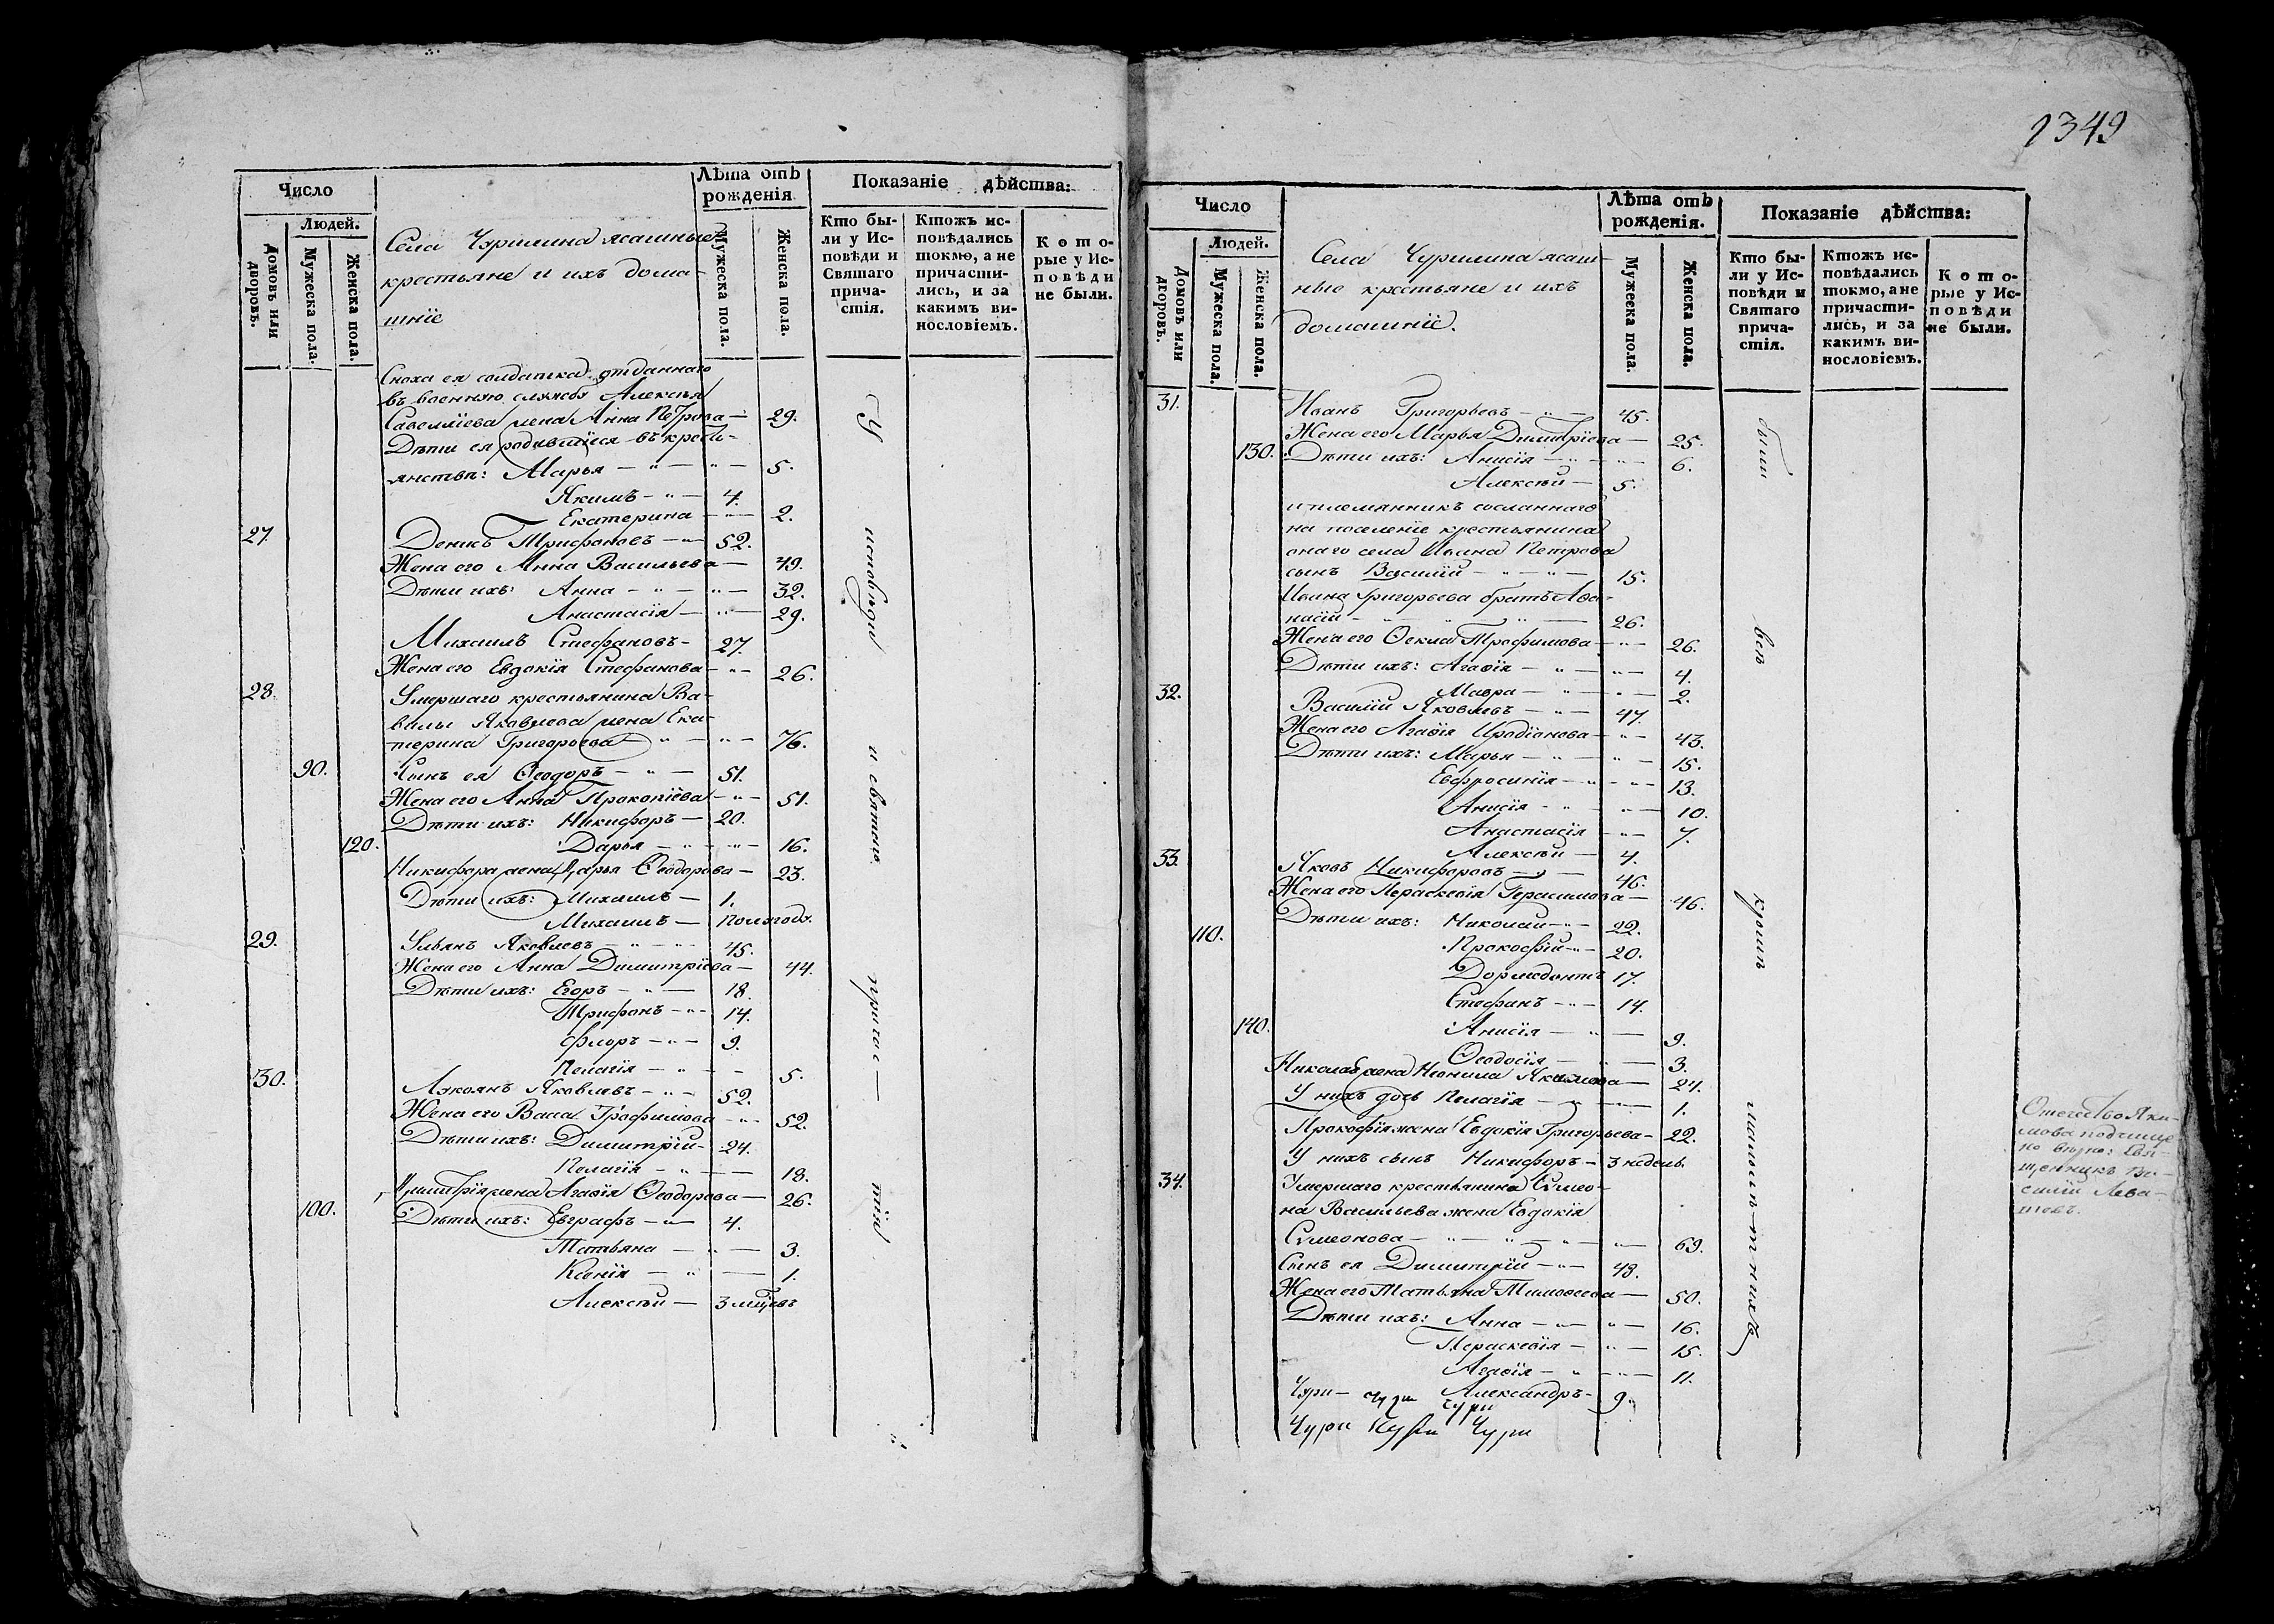 Число
Людей.
Домовъ или дворовъ.
Мужеска пола.
Женска пола.
Села Чурилина ясашные
крестьяне и ихъ дома-
шнiе
Лѣта отъ
рожденiя
Мужеска пола.
Женска пола.
Показанiе дѣйства:
Кто бы-
ли у Ис-
повѣди и
Святаго
прича-
стiя.
Ктожъ ис-
повѣдались
токмо, а не
причасти-
лись, и за
какимъ ви-
нословiемъ.
Кото-
рые у Ис-
повѣди
не были.
Сноха ея солдатка отданнаго
въ военную службу Алексѣя
Савелiева жена Анна Петрова — 29.
Дѣти ея родившiеся въ кресть-
янствѣ: Марья — 5.
Якимъ — 4.
Екатерина — 2.
27. Денисъ Трифоновъ — 52.
Жена его Анна Васильева — 49.
Дѣти ихъ: Анна — 32.
Анастасiя — 29.
Михаилъ Стефановъ — 27.
Жена его Евдокiя Стефанова — 26.
28. Умершаго крестьянина Ва-
вилы Яковлева жена Ека-
терина Григорьева — 76.
90. Сынъ ея Ѳеодоръ — 51.
Жена его Анна Прокопiева — 51.
Дѣти ихъ: Никифоръ — 20.
120. Дарья — 16.
Никифора жена Дарья Ѳеодорова — 23.
Дѣти ихъ: Михаилъ — 1.
Михаилъ — полгода.
29. Ульянъ Яковлевъ — 45.
Жена его Анна Димитрiева — 44.
Дѣти ихъ: Егоръ — 18.
Трифонъ — 14.
Флоръ — 9.
Пелагiя — 5.
30. Лукоянъ Яковлевъ — 52.
Жена его Васа Трофимова — 52.
Дѣти ихъ: Димитрiй — 24.
Пелагiя — 18.
Димитрiя жена Агаѳiя Ѳеодорова — 26.
100. Дѣти ихъ: Евграфъ — 4.
Татьяна — 3.
Ксенiя — 1.
Алексѣй — 3 мцсвъ
У исповѣди и святаго причас — тiя
1349
Число
Людей.
Домовъ или дворовъ.
Мужеска пола.
Женска пола.
Села Чурилина ясаш-
ные крестьяне и ихъ
домашнiе.
Лѣта отъ
рожденiя.
Мужеска пола.
Женска пола.
Показанiе дѣйства:
Кто бы-
ли у Ис-
повѣди и
Святаго
прича-
стiя.
Ктожъ ис-
повѣдались
токмо, а не
причасти-
лись, и за
какимъ ви-
нословiемъ.
Кото-
рые у Ис-
повѣди
не были.
31. Иванъ Григорьевъ — 45.
Жена его Марья Димитрiева — 25.
130. Дѣти ихъ: Анисiя — 6.
Алексѣй — 5.
и племянникъ сосланнаго
на поселенiе крестьянина
онаго села Ивана Петрова
сынъ Василiй — 15.
Ивана Григорьева братъ Аѳа-
насiй — 26.
Жена его Ѳекла Трофимова — 26.
Дѣти ихъ: Агаѳiя — 4.
Мавра — 2.
32. Василiй Яковлевъ — 47.
Жена его Агаѳiя Иродiонова — 43.
Дѣти ихъ: Марья — 15.
Евфросинiя — 13.
Анисiя — 10.
Анастасiя — 7.
Алексѣй — 4.
33. Яковъ Никифоровъ — 46.
Жена его Пераскевiя Герасимова — 46.
Дѣти ихъ: Николай — 22.
110. Прокофiй — 20.
Дормедонтъ 17.
Стефанъ — 14.
140. Анисiя — 9.
Ѳеодосiя — 3.
Николая жена Неонила Якимова — 24.
У нихъ дочь Пелагiя — 1.
Прокофiя жена Евдокiя Григорьева — 22.
У нихъ сынъ Никифоръ — 3 недель
34. Умершаго крестьянина Симео-
на Васильева жена Евдокiя
Симеонова — 69.
Сынъ ея Димитрiй — 48.
Жена его Татьяна Тимоѳеева — 50.
Дѣти ихъ: Анна — 16.
Пераскевiя — 15.
Агаѳiя — 11.
Александръ — 9.
Чури — Чури Чури
Чури Чури Чури
были всѣ кромѣ малолѣтнихъ
Отечество Яки-
мова подчище-
но вѣрно: Свя-
щенникъ Ва-
силiй Лева-
шевъ.